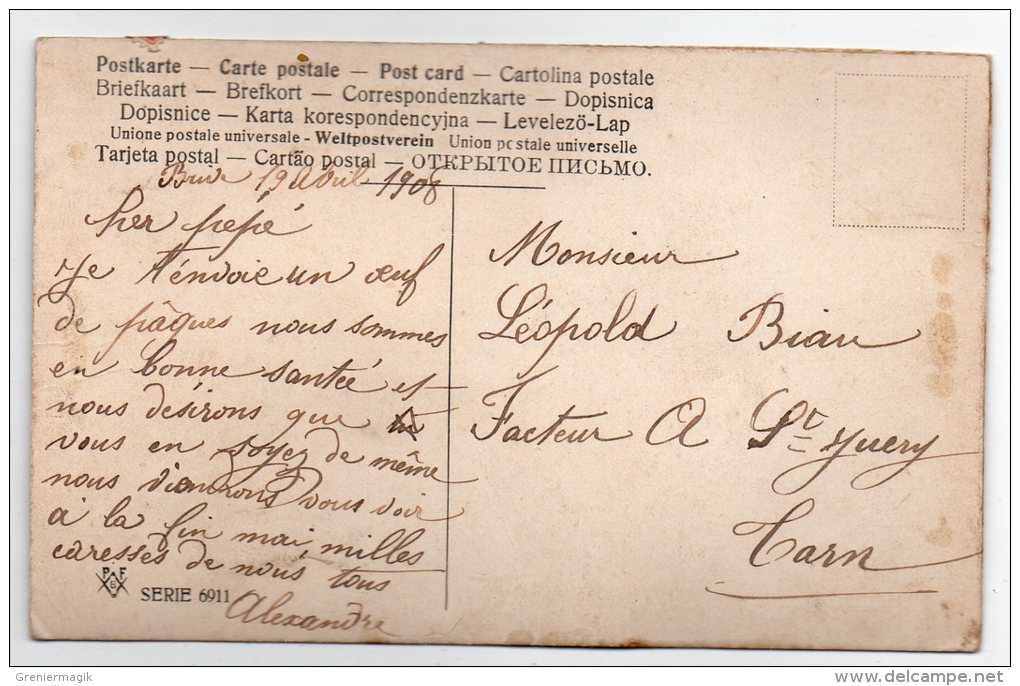 Postkarte — Carte postale — Post card — Cartolina postale
Briefkaart — Brefkort — Correspondenzkarte — Dopisnica
Dopisnice — Karta korespondencyjna — Levelezö-Lap
Unione postale universale - Weltpostverein Union postale universelle
Tarjeta postal — Cartão postal — ОТКРЫТОЕ ПИСЬМО.
Brive 19 Avril 1908
Cher pépé
Je t'envoie un œuf
de pâques nous sommes
en bonne santée et
nous désirons que
vous en soyez de même
nous viendrons vous voir
à la fin mai, milles
caresses de nous tous
Alexandre
P F B
SERIE 6911
Monsieur
Léopold Biau
Facteur A St Juery
Tarn
Greniermagik
www.delcampe.net